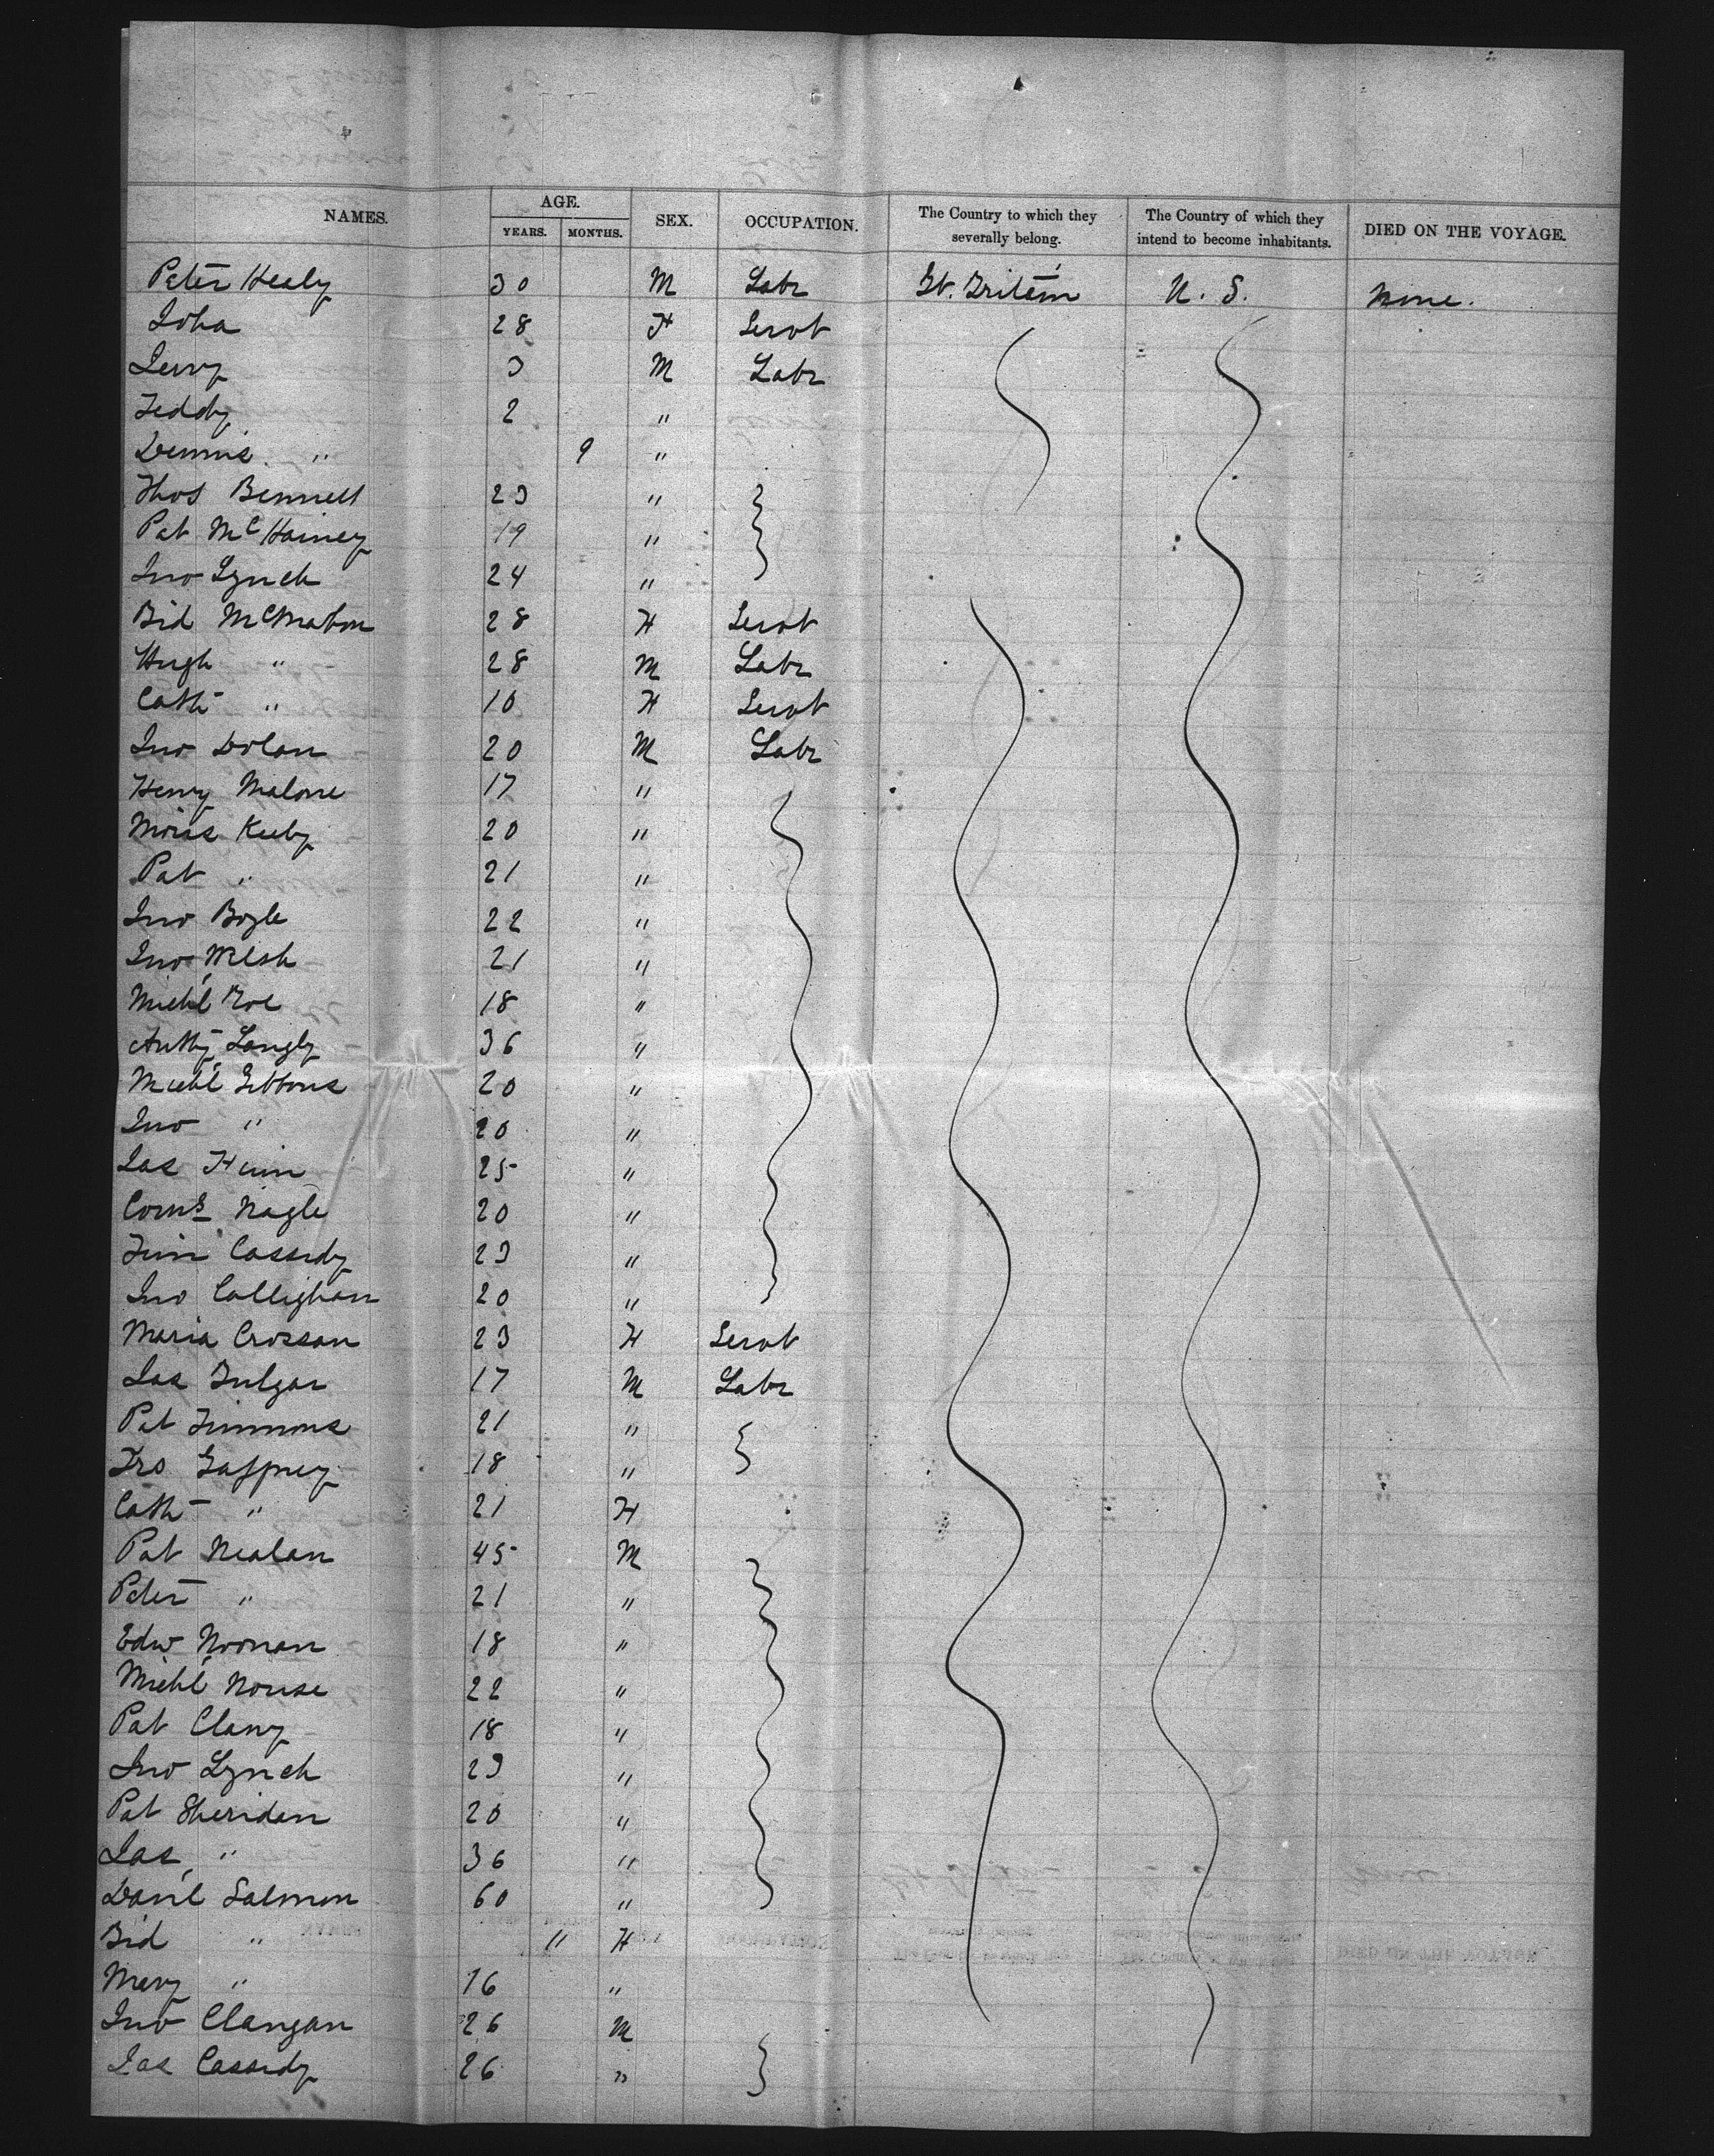 NAMES. AGE. YEARS. MONTHS. SEX. OCCUPATION. The Country to which they severally belong. The Country of which they intend to become inhabitants. DIED ON THE VOYAGE.
Peter Healy 30 M Labr Gt. Britain U. S. None.
Joha 28 F Servt
Jerry 3 M Labr
Teddy 2 "
Dennis " 9 "
Thos Bennett 23 "
Pat McHainey 19 "
Jno Lynch 24 "
Bid McMahon 28 F Servt
Hugh " 28 M Labr
Cath " 10 F Servt
Jno Dolan 20 M Labr
Henry Malone 17 "
Moriss Keeby 20 "
Pat " 21 "
Jno Boyle 22 "
Jno Welsh 21 "
Michl Roe 18 "
Anthy Langly 36 "
Michl Gibbons 20 "
Jno " 20 "
Jas Finn 25 "
Corns Nagle 20 "
Tim Cassidy 23 "
Jno Callighan 20 "
Maria Crossan 23 F Servt
Jas Fulgar 17 M Labr
Pat Timmons 21 "
Frs Gaffney 18 "
Cath " 21 F
Pat Nealan 45 M
Peter " 21 "
Edw Noonan 18 "
Michl Nouse 22 "
Pat Clany 18 "
Jno Lynch 23 "
Pat Sheridan 20 "
Jas " 36 "
Danl Salmon 60 "
Bid " 11 F
Mary " 16 "
Jno Clangan 26 M
Jas Cassidy 26 "